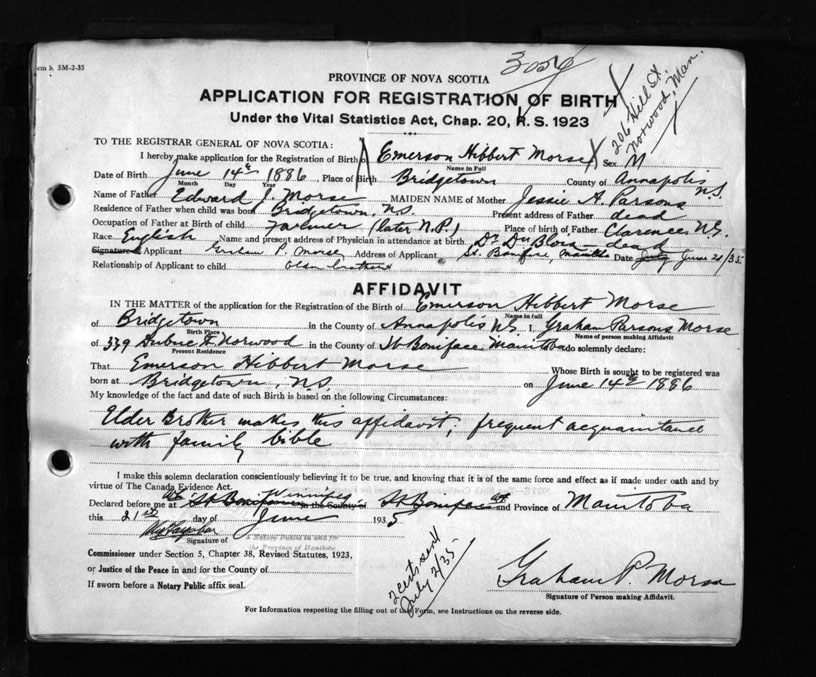 5M-2-35
3026
206 Hill St.
Norwood, Man.
PROVINCE OF NOVA SCOTIA
APPLICATION FOR REGISTRATION OF BIRTH
Under the Vital Statistics Act, Chap. 20, R. S. 1923
TO THE REGISTRAR GENERAL OF NOVA SCOTIA:
I hereby make application for the Registration of Birth of Emerson Hibbert Morse Sex M
Name in Full
Date of Birth June 14th 1886 Place of Birth Bridgetown County of Annapolis N.S.
Month Day Year
Name of Father Edward J. Morse MAIDEN NAME of Mother Jessie A. Parsons
Residence of Father when child was born Bridgetown, N.S. Present address of Father dead
Occupation of Father at Birth of child Farmer (later N.P.) Place of birth of Father Clarence N.S.
Race English Name and present address of Physician in attendance at birth Dr DuBlois - dead
Signature of Applicant Graham P. Morse Address of Applicant St. Boniface, Manitoba Date July June 21/35
Relationship of Applicant to child Elder brother
AFFIDAVIT
IN THE MATTER of the application for the Registration of the Birth of Emerson Hibbert Morse
Name in full
of Bridgetown in the County of Annapolis NS I, Graham Parsons Morse
Birth Place Name of person making Affidavit
of 339 Norwood in the County of St Boniface Manitoba do solemnly declare:
Present Residence
That Emerson Hibbert Morse Whose Birth is sought to be registered was
born at Bridgetown, N.S. on June 14th 1886
My knowledge of the fact and date of such Birth is based on the following Circumstances:
Elder Brother makes this affidavit; frequent acquaintance
with family bible
I make this solemn declaration conscientiously believing it to be true, and knowing that it is of the same force and effect as if made under oath and by
virtue of The Canada Evidence Act.
Declared before me at St Boniface Winnipeg in the County of St Boniface and Province of Manitoba
this 21st day of June 1935
Signature of
the Province of Manitoba
Commissioner under Section 5, Chapter 38, Revised Statutes, 1923,
or Justice of the Peace in and for the County of
If sworn before a Notary Public affix seal.
2 certs sent
July 2/35
Graham P. Morse
Signature of Person making Affidavit.
For Information respecting the filling out of this Form, see Instructions on the reverse side.